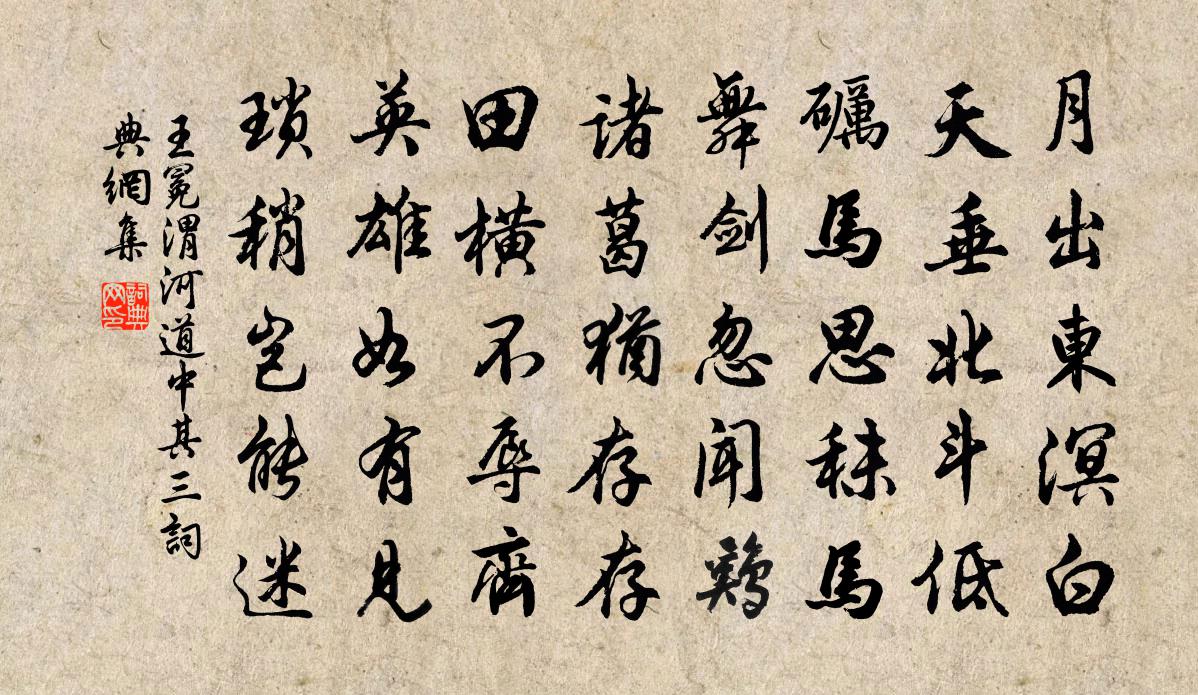 月出東溟白
天垂北斗低
礪馬思秣馬
舞劍忽聞鷄
諸葛猶存存
田橫不辱齊
英雄如有見
瑣稍豈能迷
王冕渭河道中其三詞
典網集
詞典网印